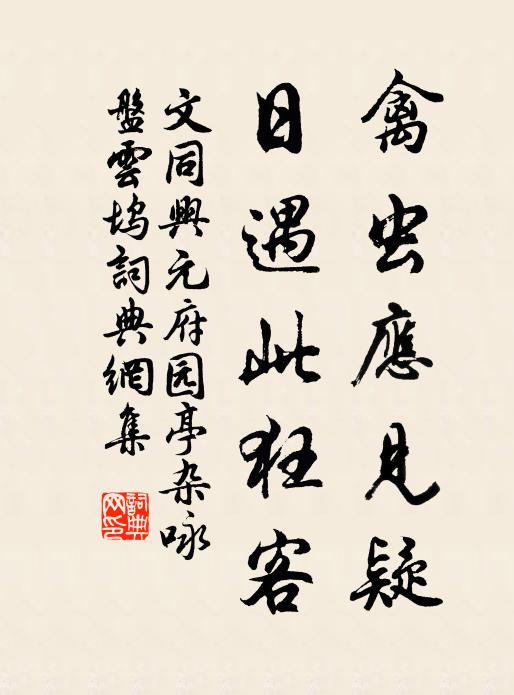 禽虫應見疑
日遇此狂客
文同興元府园亭杂咏
盤雲塢詞典網集
詞典網印